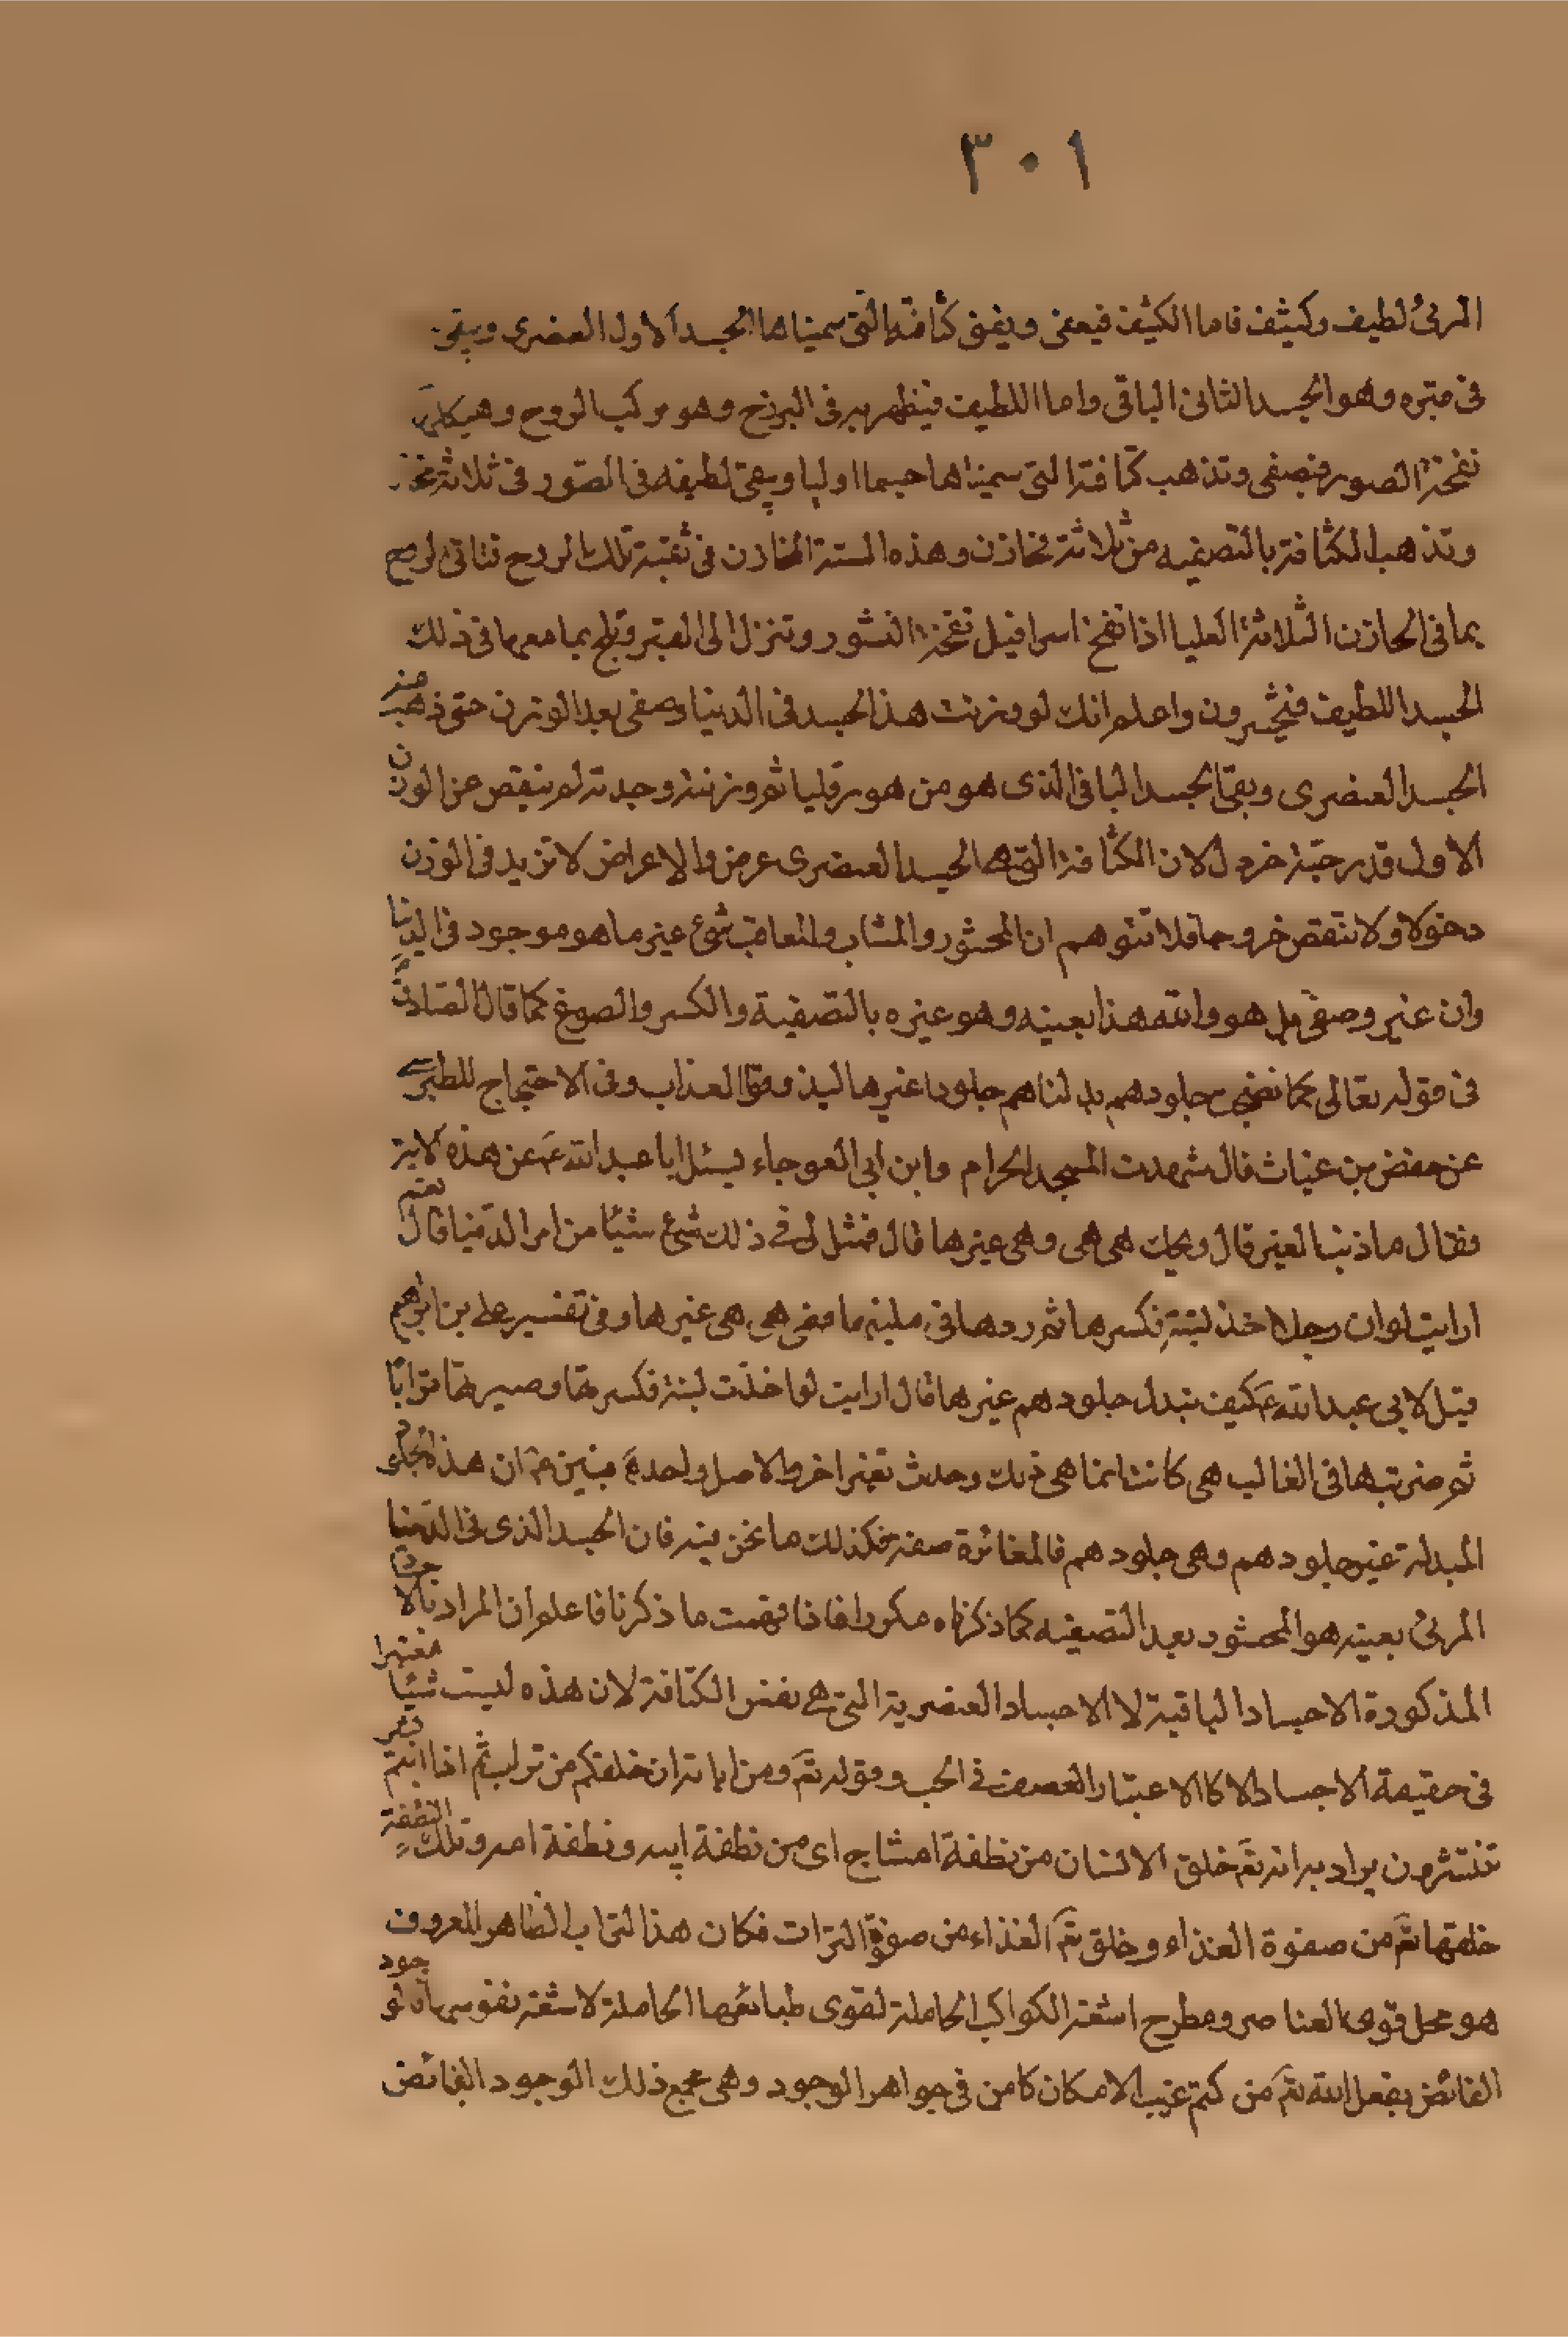 ٣٠١
المرئى لطيف وكثيف فاما الكثيف فيعفن ويفنى كثافته التى سميناها الجسد الاول العنصرى ويبقى
فى قبره وهو الجسد الثانى الباقى واما اللطيف فيظهر به فى البرزخ وهو مركب الروح وهيكله
نفخة الصور فيصفى وتذهب كثافته التى سميناها جسما اوليا ويبقى لطيفه فى الصور فى ثلاثة مخازن
وتذهب الكثافة بالتصفيه من ثلاثة مخازن وهذه الستة المخازن فى ثقبة تلك الروح فتاتى الروح
بما فى الخازن الثلاثة العليا اذا نفخ اسرافيل نفخة النشور وتنزل الى القبر وتلج بما معها فى ذلك
الجسد اللطيف فيحشرون واعلم انك لو وزنت هذا الجسد فى الدنيا وصفى بعد الوزن حتى ذهب منه
الجسد العنصرى وبقى الجسد الباقى الذى هو من هورقليا ثم وزنته وجدته لم ينقص عن الوزن
الاول قدر حبة خردل لان الكثافة التى هى الجسد العنصرى عرض والاعراض لا تزيد فى الوزن
دخولا ولا تنقص خروجا فلا تتوهم ان المحشور والمثاب والمعاقب شئ غير ما هو موجود فى الدنيا
وان غير وصفى بل هو والله هذا بعينه وهو غيره بالتصفية والكسر والصوغ كما قال الصادق
فى قوله تعالى كلما نضجت جلودهم بدلناهم جلودا غيرها ليذوقوا العذاب وفى الاحتجاج للطبرسى
عن حفص بن غياث قال شهدت المسجد الحرام وابن ابى العوجاء يسئل ابا عبد الله ع عن هذه الاية
فقال ما ذنب الغير قال ويحك هى هى وهى غيرها قال فمثل لى فى ذلك شئ شيئا من امر الدنيا قال نعم
ارايت لو ان رجلا اخذ لبنة فكسرها ثم ردها فى ملبنها فهى هى هى غيرها وفى تفسير على بن ابراهيم
قيل لابى عبد الله ع كيف تبدل جلودهم غيرها قال ارايت لو اخذت لبنة فكسرتها وصيرتها ترابا
ثم ضربتها فى القالب هى كانت انما هى ذلك وحدث تغيرا اخر والاصل واحد فبين ع ان هذه الجلود
المبدلة غير جلودهم وهى جلودهم فالمغائرة صفة فكذلك ما نحن فيه فان الجسد الذى فى الدنيا
المرئى بعينه هو المحشور بعد التصفيه كما ذكرناه مكررا فاذا فهمت ما ذكرنا فاعلم ان المراد بالاجساد
المذكورة الاجساد الباقية لا الاجساد العنصرية التى هى نفس الكثافة لان هذه ليست شيئا معتبرا
فى حقيقة الاجساد الا كالاعتبار العصف فى الحب وقوله تع ومن اياته ان خلقكم من تراب ثم اذا انتم بشر
تنتشرون يراد به انه تع خلق الانسان من نطفة امشاج اى من نطفة ابيه ونطفة امه وتلك النطفة
خلقها تع من صفوة الغذاء وخلق تع الغذاء من صفوة التراب فكان هذا التراب الظاهر المعروف
هو محل قوى العناصر ومطرح اشعة الكواكب الحاملة لقوى طبائعها الحاملة لاشعة نفوسها والوجود
الفائض بفعل الله تع من كتم غيب الامكان كامن فى جواهر الوجود وهى مجمع ذلك الوجود الفائض